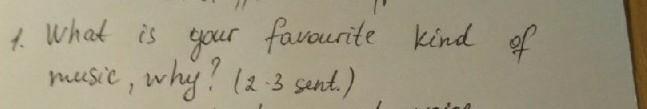 1. What is your favourite kind of
music, why? (2-3 sent.)